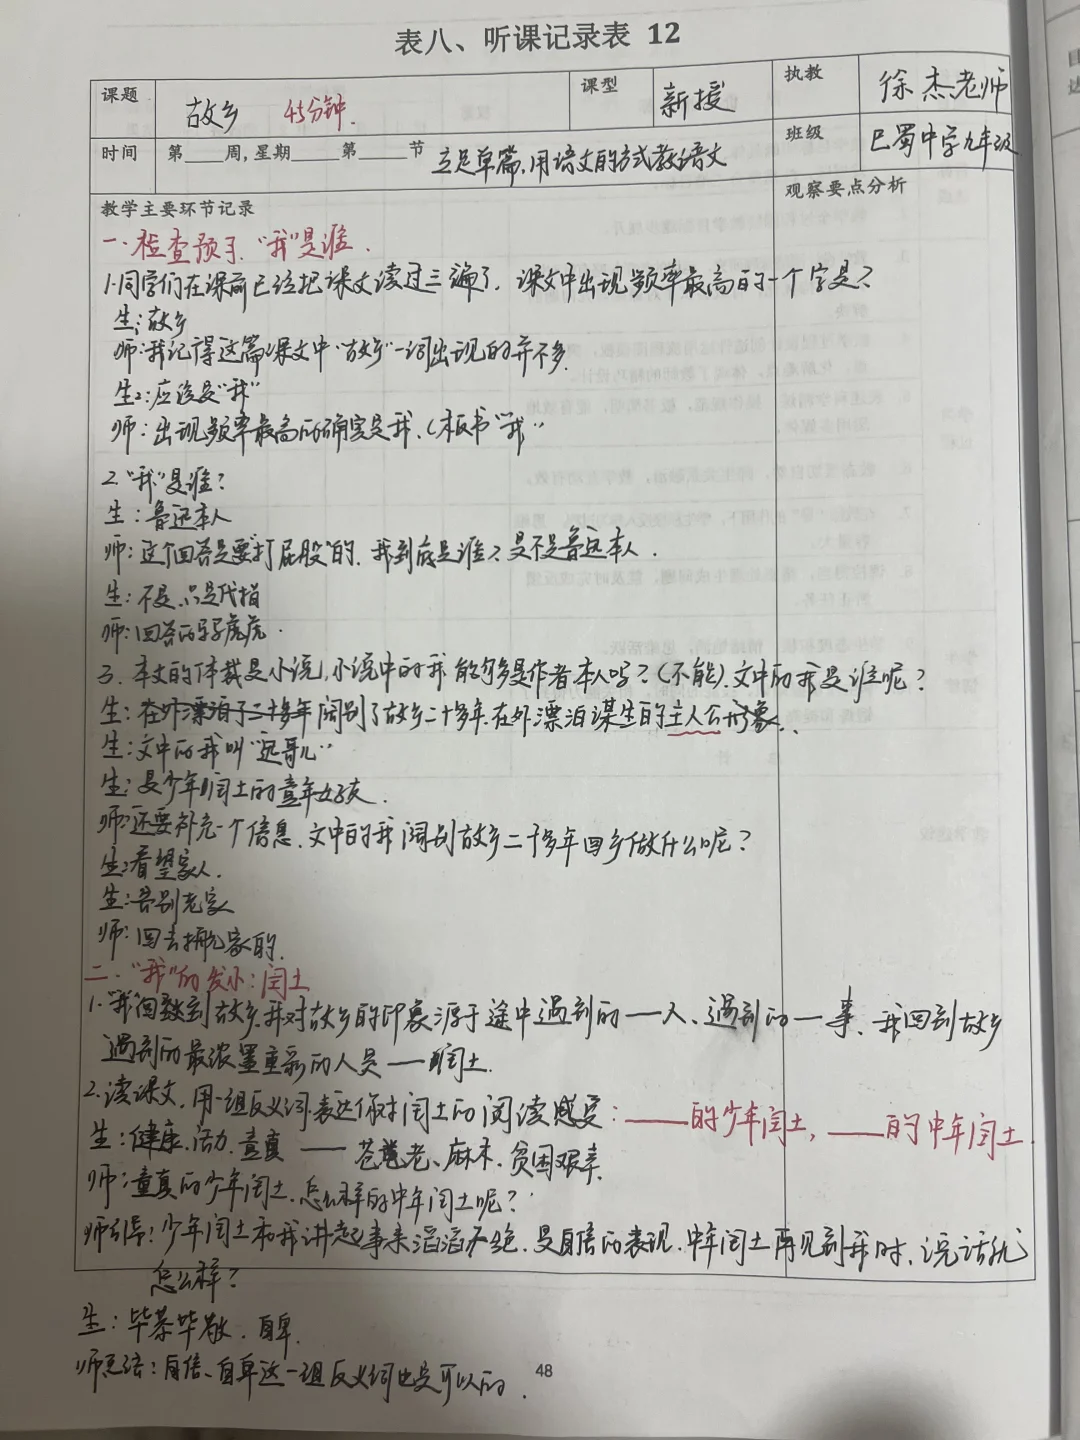 表八、听课记录表 12
课题 故乡 45分钟. 课型 新授 执教 徐杰老师
时间 第____周,星期____第____节 立足单篇,用语文的方式教语文 班级 巴蜀中学九年级
教学主要环节记录 观察要点分析
一、检查预习、"我"是谁.
1.同学们在课前已经把课文读过三遍了,课文中出现频率最高的一个字是?
生:故乡
师:我记得这篇课文中"故乡"一词出现的并不多.
生2:应该是"我"
师:出现频率最高的确实是我.(板书"我"
2."我"是谁?
生:鲁迅本人
师:这个回答是要"打屁股"的.我到底是谁?是不是鲁迅本人.
生:不是.只是代指
师:回答的马马虎虎.
3.本文的体裁是小说,小说中的我能够是作者本人吗?(不能).文中的我是谁呢?
生:在外漂泊了二十多年阔别了故乡二十多年.在外漂泊谋生的主人公形象.
生:文中的我叫"迅哥儿"
生:是少年闰土的童年好友.
师:还要补充一个信息.文中的我阔别故乡二十多年回乡做什么呢?
生:看望家人.
生:告别老家
师:回去搬家的.
二."我"的发小:闰土
1.我回到故乡,我对故乡的印象源于途中遇到的一人、遇到的一事,我回到故乡
遇到的最浓墨重彩的人是——闰土.
2.读课文,用一组反义词表达你对闰土的阅读感受:____的少年闰土,____的中年闰土
生:健康.活力.童真——苍老、麻木、贫困艰辛.
师:童真的少年闰土.怎么样的中年闰土呢?
师引导:少年闰土和我讲起事来滔滔不绝,是自信的表现.中年闰土再见到我时,说话就
怎么样?
生:毕恭毕敬.自卑.
师总结:自信、自卑这一组反义词也是可以的.
48